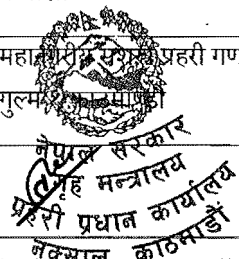 महानगरीय सशस्त्र प्रहरी गण
गुल्म
नेपाल सरकार
गृह मन्त्रालय
प्रहरी प्रधान कार्यालय
नक्साल, काठमाडौं